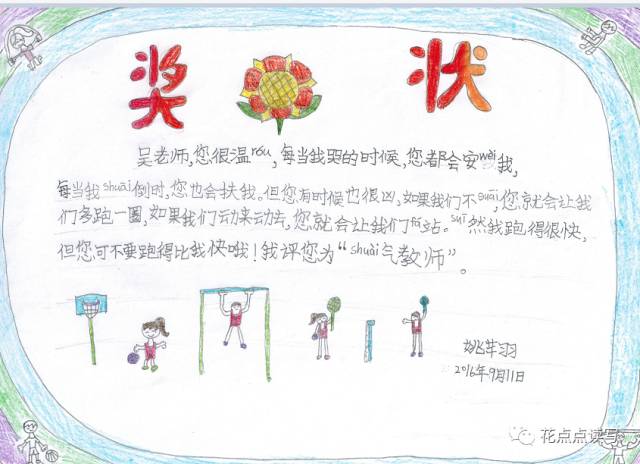 奖 状
吴老师,您很温róu,每当我哭的时候,您都会安wèi我,
每当我shuāi倒时,您也会扶我。但您有时候也很凶,如果我们不guāi,您就会让我
们多跑一圈,如果我们动来动去,您就会让我们fá站。suī然我跑得很快,
但您可不要跑得比我快哦!我评您为“shuài气教师”。
姚芊羽
2016年9月11日
花点点读写